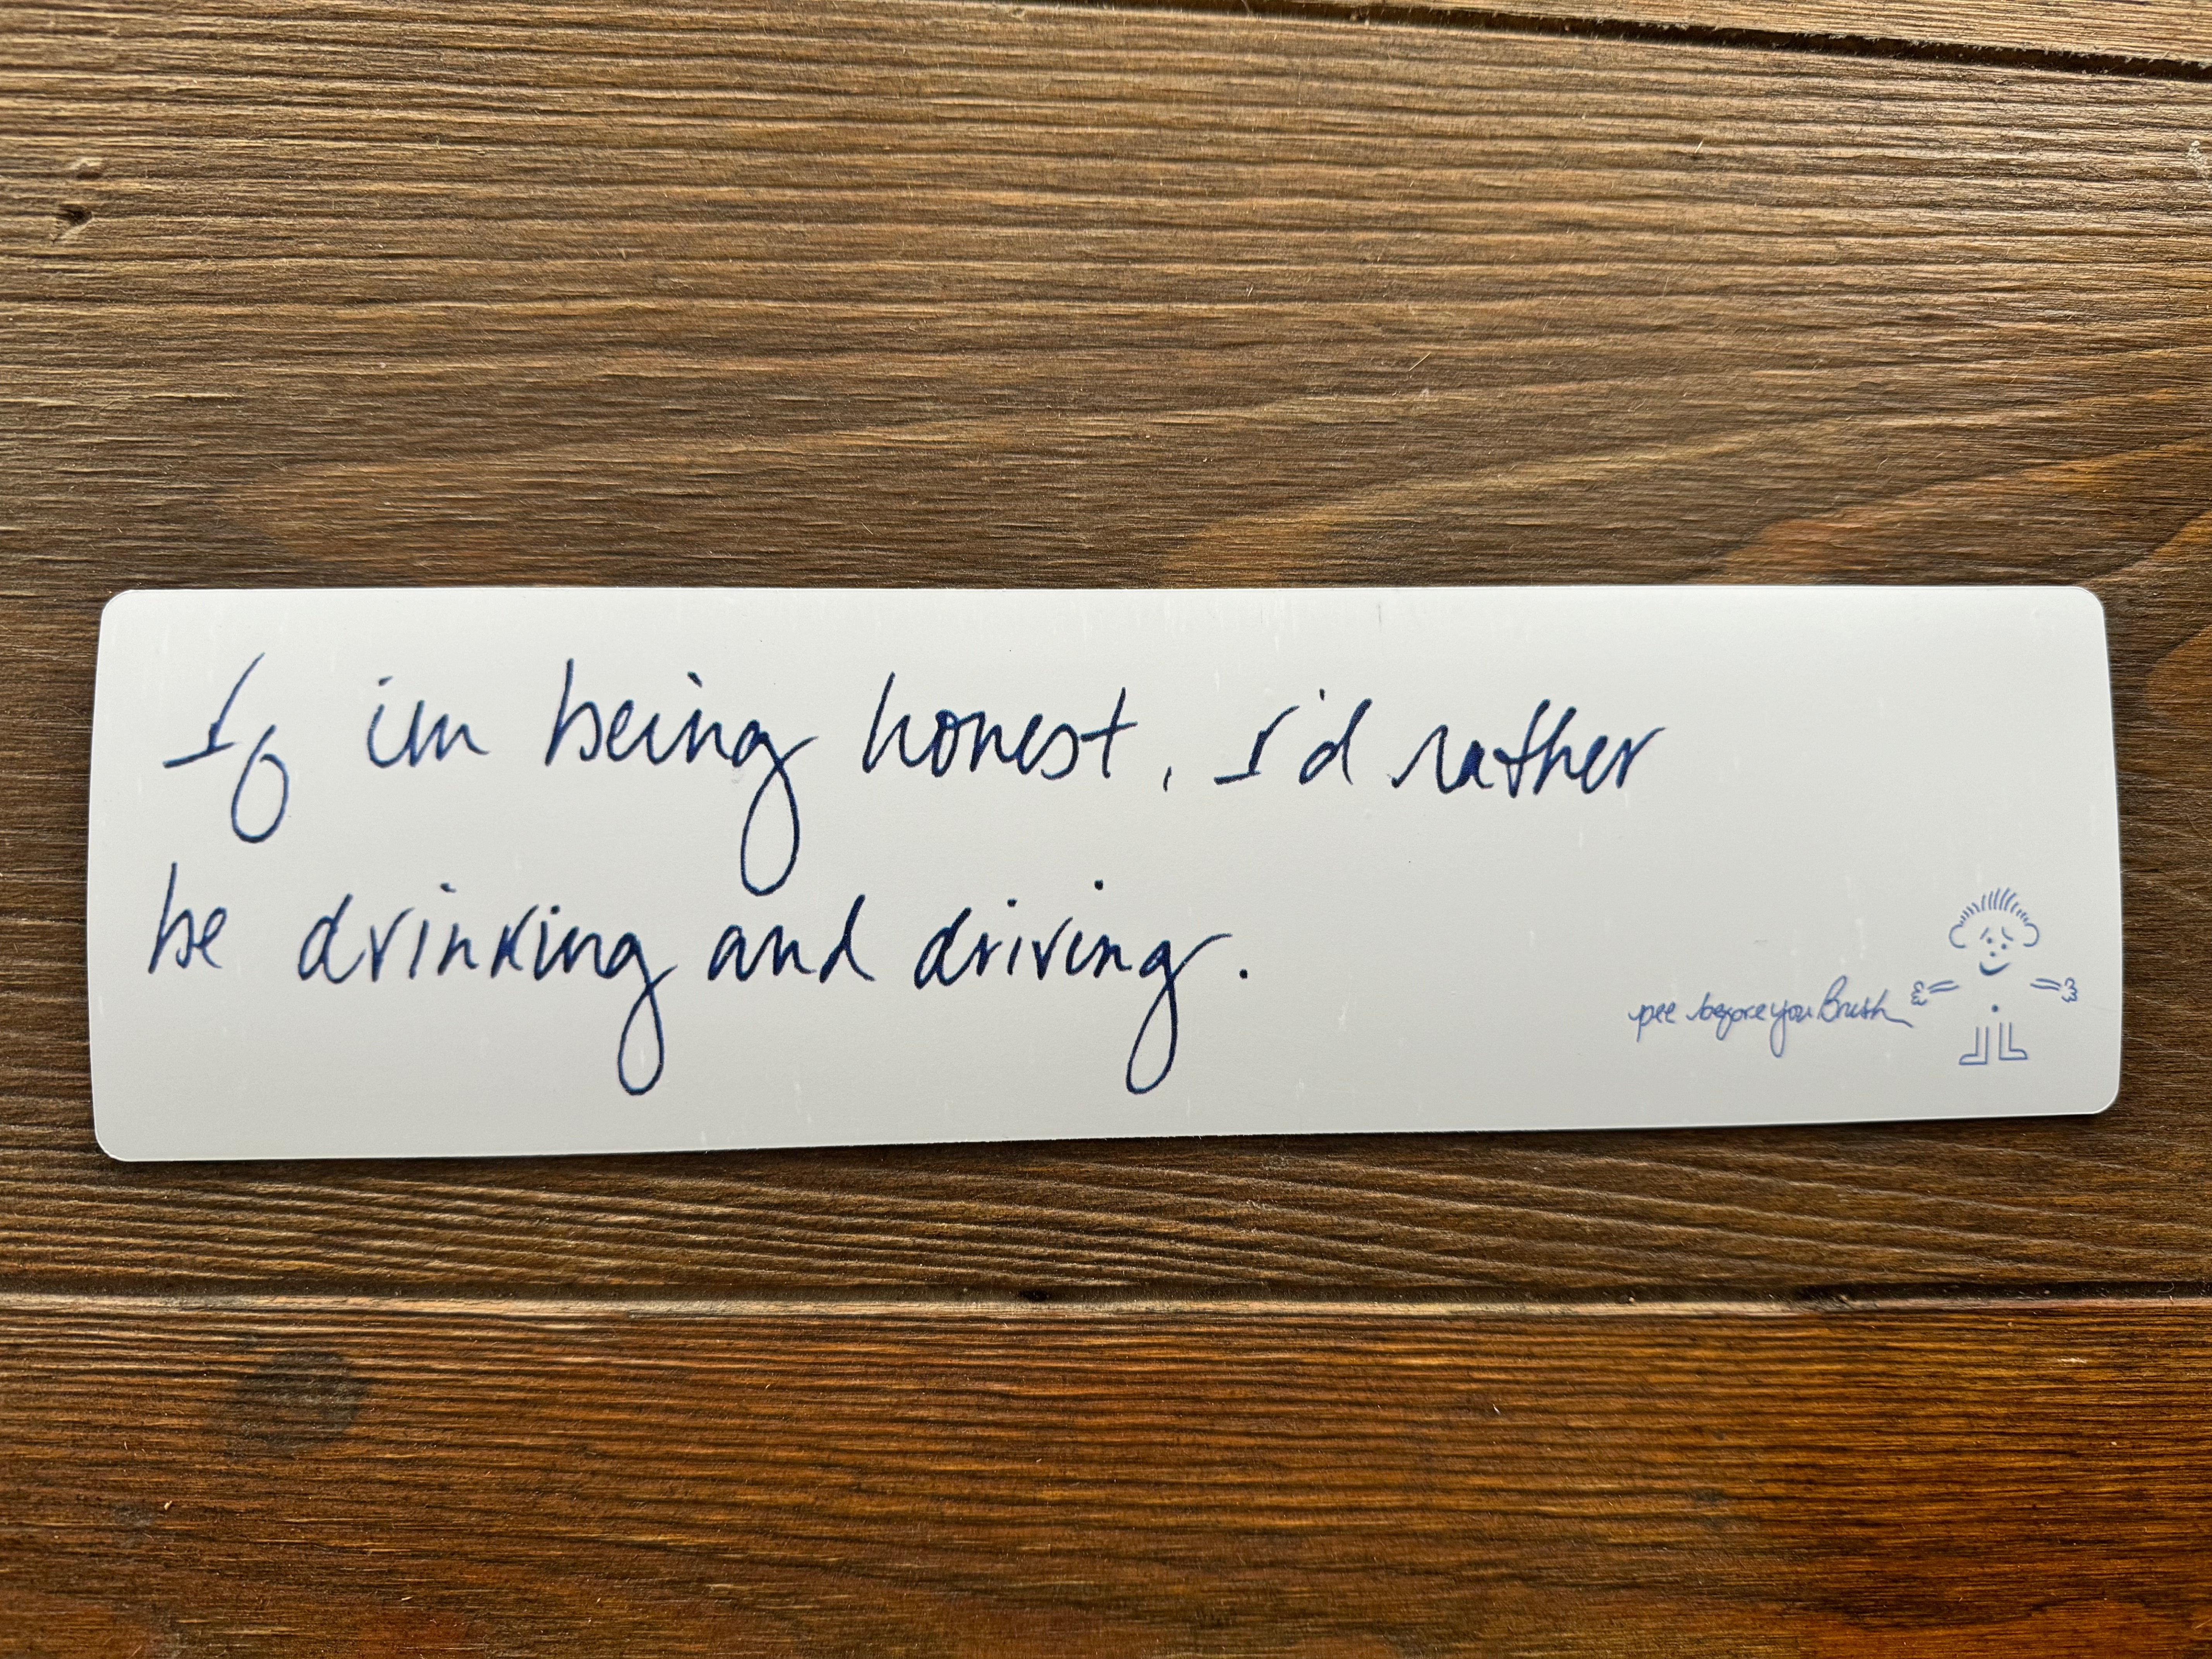 If im being honest, I'd rather
be drinking and driving.
pee before you Brush